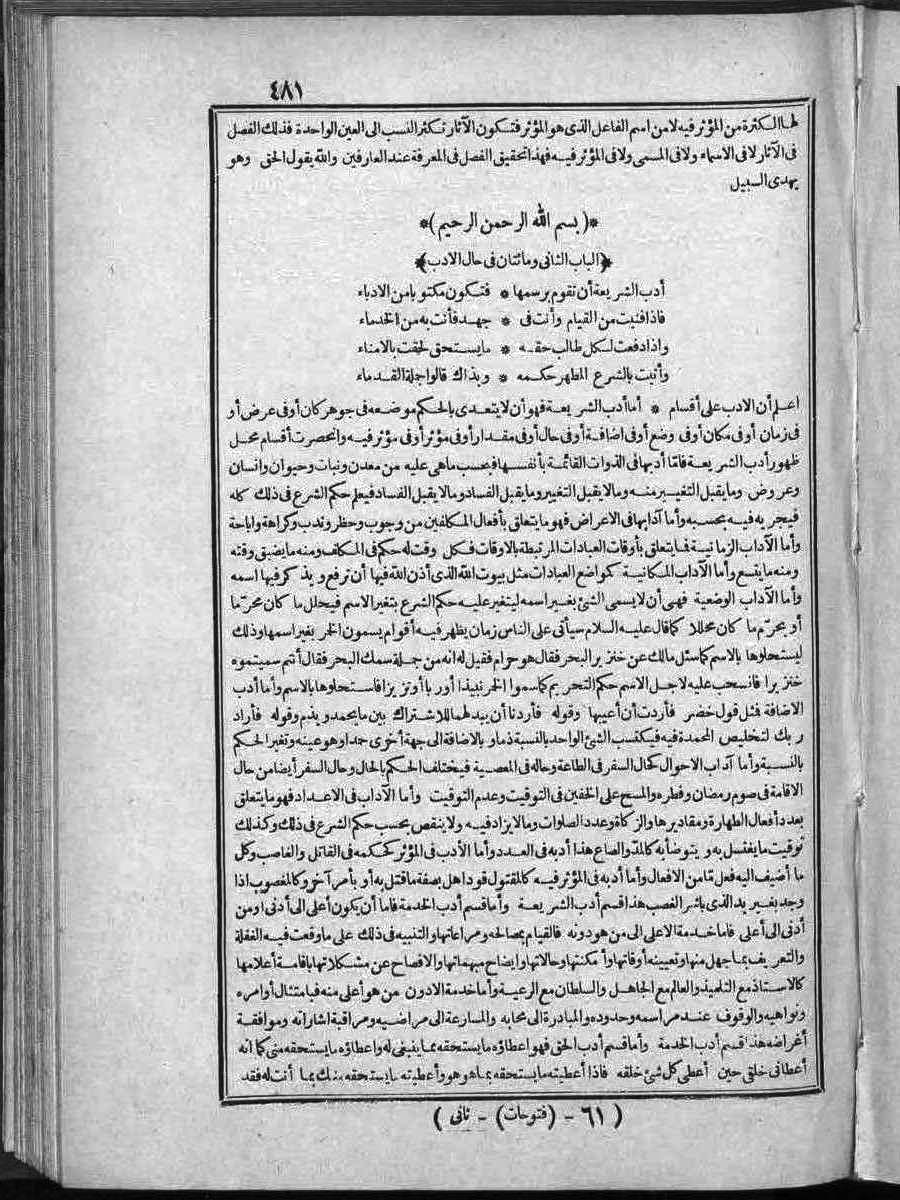 ٤٨١
لها الكثرة من المؤثر فيه لا من اسم الفاعل الذى هو المؤثر فتكون الآثار تكثر النسب الى العين الواحدة فذلك الفصل
فى الآثار لا فى الاسماء ولا فى المسمى ولا فى المؤثر فيه فهذا تحقيق الفصل فى المعرفة عند العارفين والله يقول الحق وهو
يهدى السبيل
*(بسم الله الرحمن الرحيم)*
*(الباب الثانى ومائتان فى حال الادب)*
أدب الشريعة أن تقوم برسمها * فتكون مكتوبا من الادباء
فاذا فنيت من القيام وأنت فى * جهد فأنت به من الخدماء
واذا دفعت لكل طالب حقه * ما يستحق لحقت بالامناء
وأتيت بالشرع المطهر حكمه * وبذاك قالوا جملة القدماء
اعلم أن الادب على أقسام * أما أدب الشريعة فهو أن لا يتعدى بالحكم موضعه فى جوهر كان أو فى عرض أو
فى زمان أو فى مكان أو فى وضع أو فى اضافة أو فى حال أو فى مقدار أو فى مؤثر أو فى مؤثر فيه وانحصرت أقسام محل
ظهور أدب الشريعة فاما أدبها فى الذوات القائمة بأنفسها فبحسب ما هى عليه من معدن ونبات وحيوان وانسان
وعروض وما يقبل التغيير منه وما لا يقبل التغيير وما يقبل الفساد وما لا يقبل الفساد فيعلم حكم الشرع فى ذلك كله
فيجريه فيه بحسبه وأما آدابها فى الاعراض فهو ما يتعلق بأفعال المكلفين من وجوب وحظر وندب وكراهة واباحة
وأما الآداب الزمانية فما يتعلق بأوقات العبادات المرتبطة بالاوقات فكل وقت له حكم فى المكلف ومنه ما يضيق وقته
ومنه ما يتسع وأما الآداب المكانية كمواضع العبادات مثل بيوت الله الذى أذن الله فيها أن ترفع ويذكر فيها اسمه
وأما الآداب الوضعية فهى أن لا يسمى الشئ بغير اسمه ليتغير عليه حكم الشرع بتغير الاسم فيحلل ما كان محرّما
أو يحرّم ما كان محللا كما قال عليه السلام سيأتى على الناس زمان يظهر فيه أقوام يسمون الخمر بغير اسمها وذلك
ليستحلوها بالاسم كما سئل مالك عن خنزير البحر فقال هو حرام فقيل له انه من جملة سمك البحر فقال أنتم سميتموه
خنزيرا فانسحب عليه لاجل الاسم حكم التحريم كما سموا الخمر نبيذا أو ربا أو تزيزا فاستحلوها بالاسم وأما أدب
الاضافة فمثل قول خضر فأردت أن أعيبها وقوله فأردنا أن يبدلهما للاشتراك بين ما يحمد ويذم وقوله فأراد
ربك لتخليص المحمدة فيه فيكتسب الشئ الواحد بالنسبة ذما وبالاضافة الى جهة أخرى حمدا وهو عينه وتغير الحكم
بالنسبة وأما آداب الاحوال كحال السفر فى الطاعة وحاله فى المعصية فيختلف الحكم بالحال وحال السفر أيضا من حال
الاقامة فى صوم رمضان وفطره والمسح على الخفين فى التوقيت وعدم التوقيت وأما الآداب فى الاعداد فهو ما يتعلق
بعدد أفعال الطهارة ومقاديرها والزكاة وعدد الصلوات وما لا يزاد فيه ولا ينقص بحسب حكم الشرع فى ذلك وكذلك
توقيت ما يغتسل به ويتوضأ به كالمدّ والصاع هذا أدبه فى العدد وأما الأدب فى المؤثر كحكمه فى القاتل والغاصب وكل
ما أضيف اليه فعل مّا من الافعال وأما أدبه فى المؤثر فيه كالمقتول قودا هل بصفة ما قتل به أو بأمر آخر وكالمغصوب اذا
وجد بغير يد الذى باشر الغصب هذا قسم أدب الشريعة وأما قسم أدب الخدمة فاما أن يكون أعلى الى أدنى أو من
أدنى الى أعلى فاما خدمة الاعلى الى من هو دونه فالقيام بمصالحه ومراعاتها والتنبيه فى ذلك على ما وقعت فيه الغفلة
والتعريف بما جهل منها وتعيينه أوقاتها وأمكنتها وحالاتها وايضاح مبهماتها والافصاح عن مشكلاتها باقامة أعلامها
كالاستاذ مع التلميذ والعالم مع الجاهل والسلطان مع الرعية وأما خدمة الادون من هو أعلى منه فبامتثال أوامره
ونواهيه والوقوف عند مراسمه وحدوده والمبادرة الى محابه والمسارعة الى مراضيه ومراقبة اشاراته وموافقة
أغراضه هذا قسم أدب الخدمة وأما قسم أدب الحق فهو اعطاؤه ما يستحقه بما ينبغى له واعطاؤه ما يستحقه منى كما انه
أعطانى خلقى حين أعطى كل شئ خلقه فاذا أعطيته ما يستحقه بما هو هو وأعطيته ما يستحقه منك بما أنت له فقد
( ٦١ - (فتوحات) - ثانى )